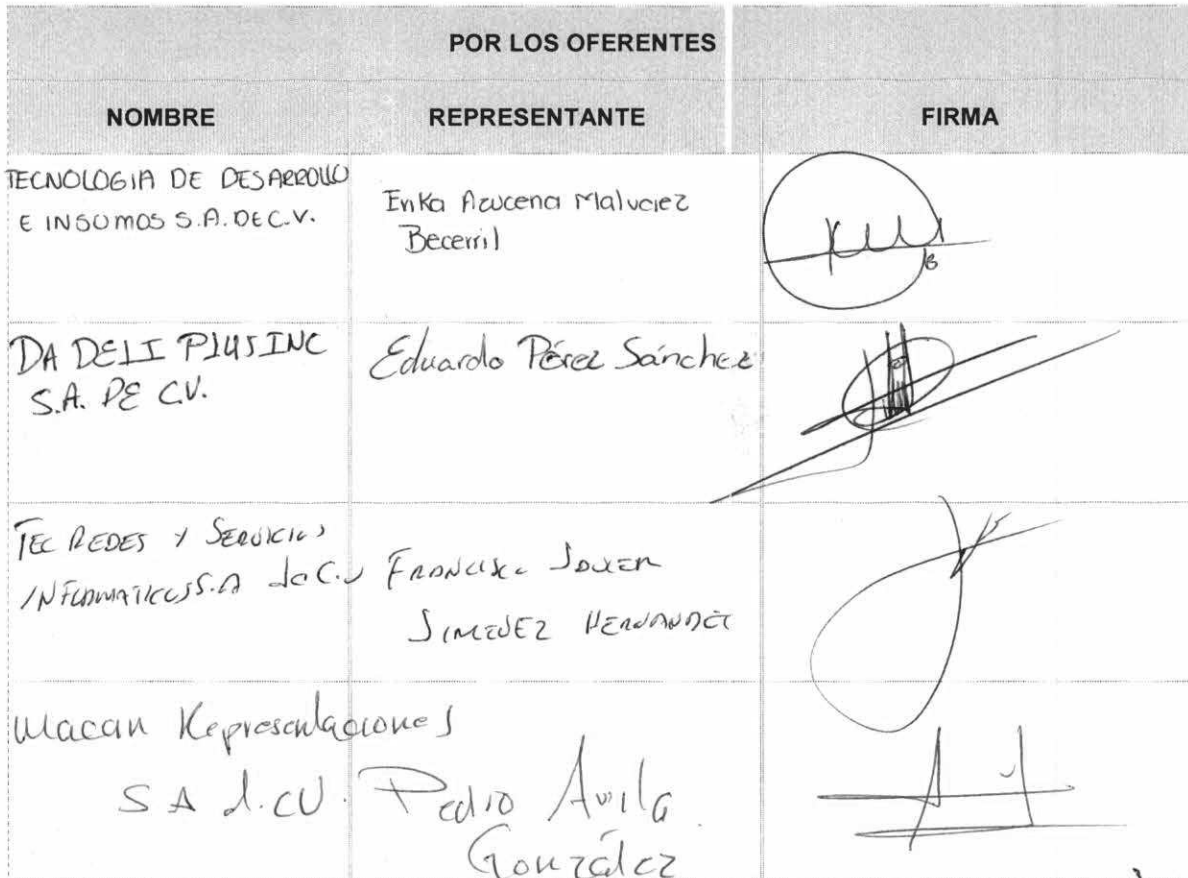 POR LOS OFERENTES
NOMBRE REPRESENTANTE FIRMA
TECNOLOGIA DE DESARROLLO
E INSUMOS S.A. DE C.V.
Erika Azucena Malvaez
Becerril
DA DELI PLUS INC
S.A. DE C.V.
Eduardo Pérez Sánchez
TEC REDES Y SERVICIOS
INFORMATICOS S.A de C.V
FRANCISCO JAVIER
JIMENEZ HERNANDEZ
Macan Representaciones
S A d. CV.
Pedro Avila
González